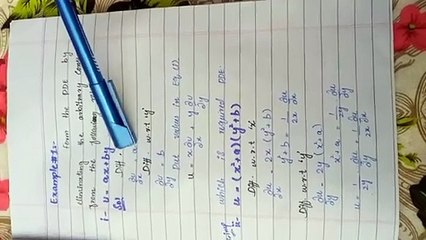 Example #1:-
Form the PDE by
eliminating the arbitrary
from the following
1- u = ax + by
Sol Diff w.r.t
∂u/∂x = a
Diff w.r.t 'y'
∂u/∂y = b
Put values in Eq (1)
u = x ∂u/∂x + y ∂u/∂y
which is required PDE.
ii- u = (x²+a)(y²+b)
Diff w.r.t 'x'
∂u/∂x = 2x (y²+b)
y²+b = 1/2x ∂u/∂x
Diff w.r.t 'y'
∂u/∂y = 2y (x²+a)
x²+a = 1/2y ∂u/∂y
u = 1/2y ∂u/∂y 1/2x ∂u/∂x